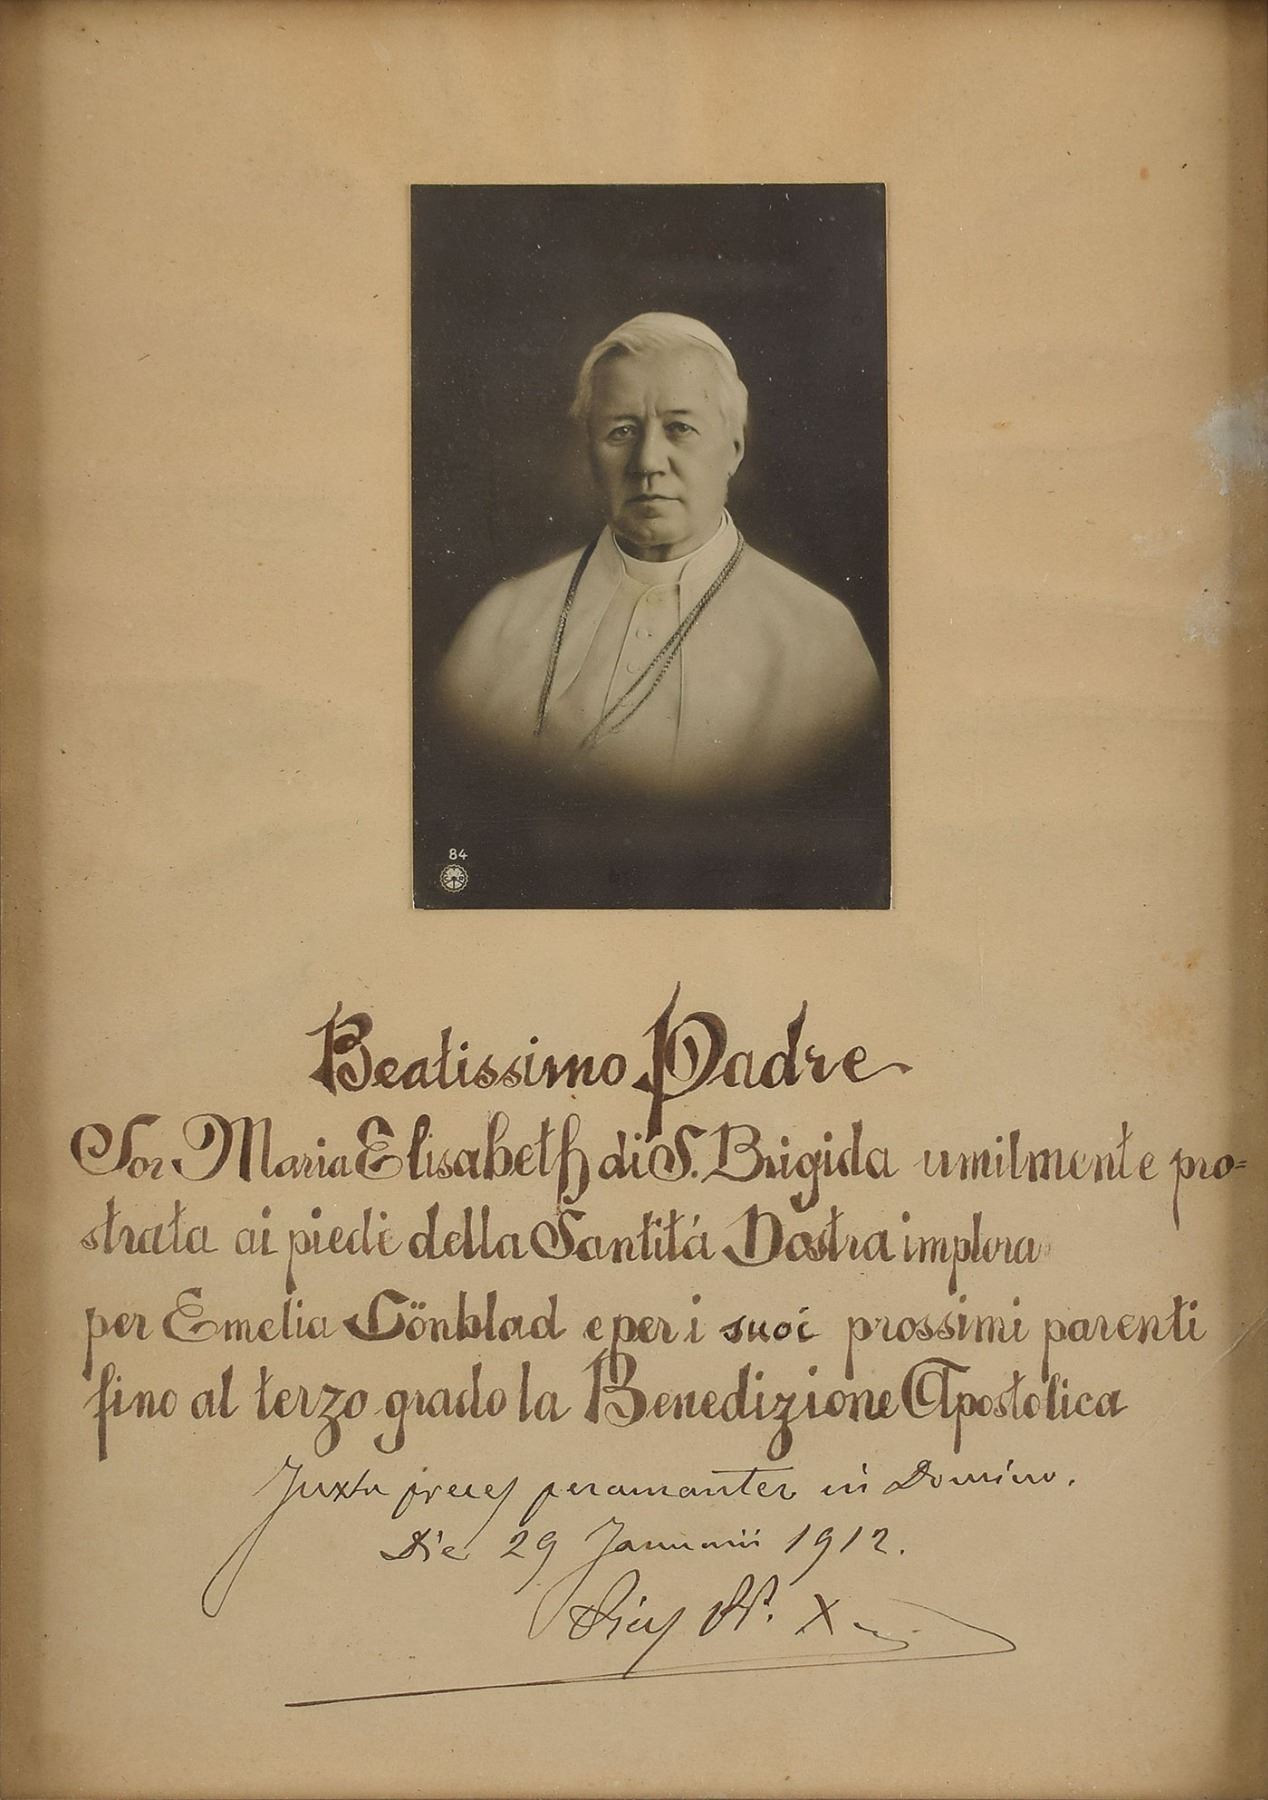 84
Beatissimo Padre
Sor Maria Elisabeth di S. Brigida umilmente pro=
strata ai piedi della Santitá Vostra implora
per Emelia Lönblad e per i suoi prossimi parenti
fino al terzo grado la Benedizione Apostolica
Juxta preces peramanter in Domino.
Die 29 Januarii 1912.
Pius PP. X